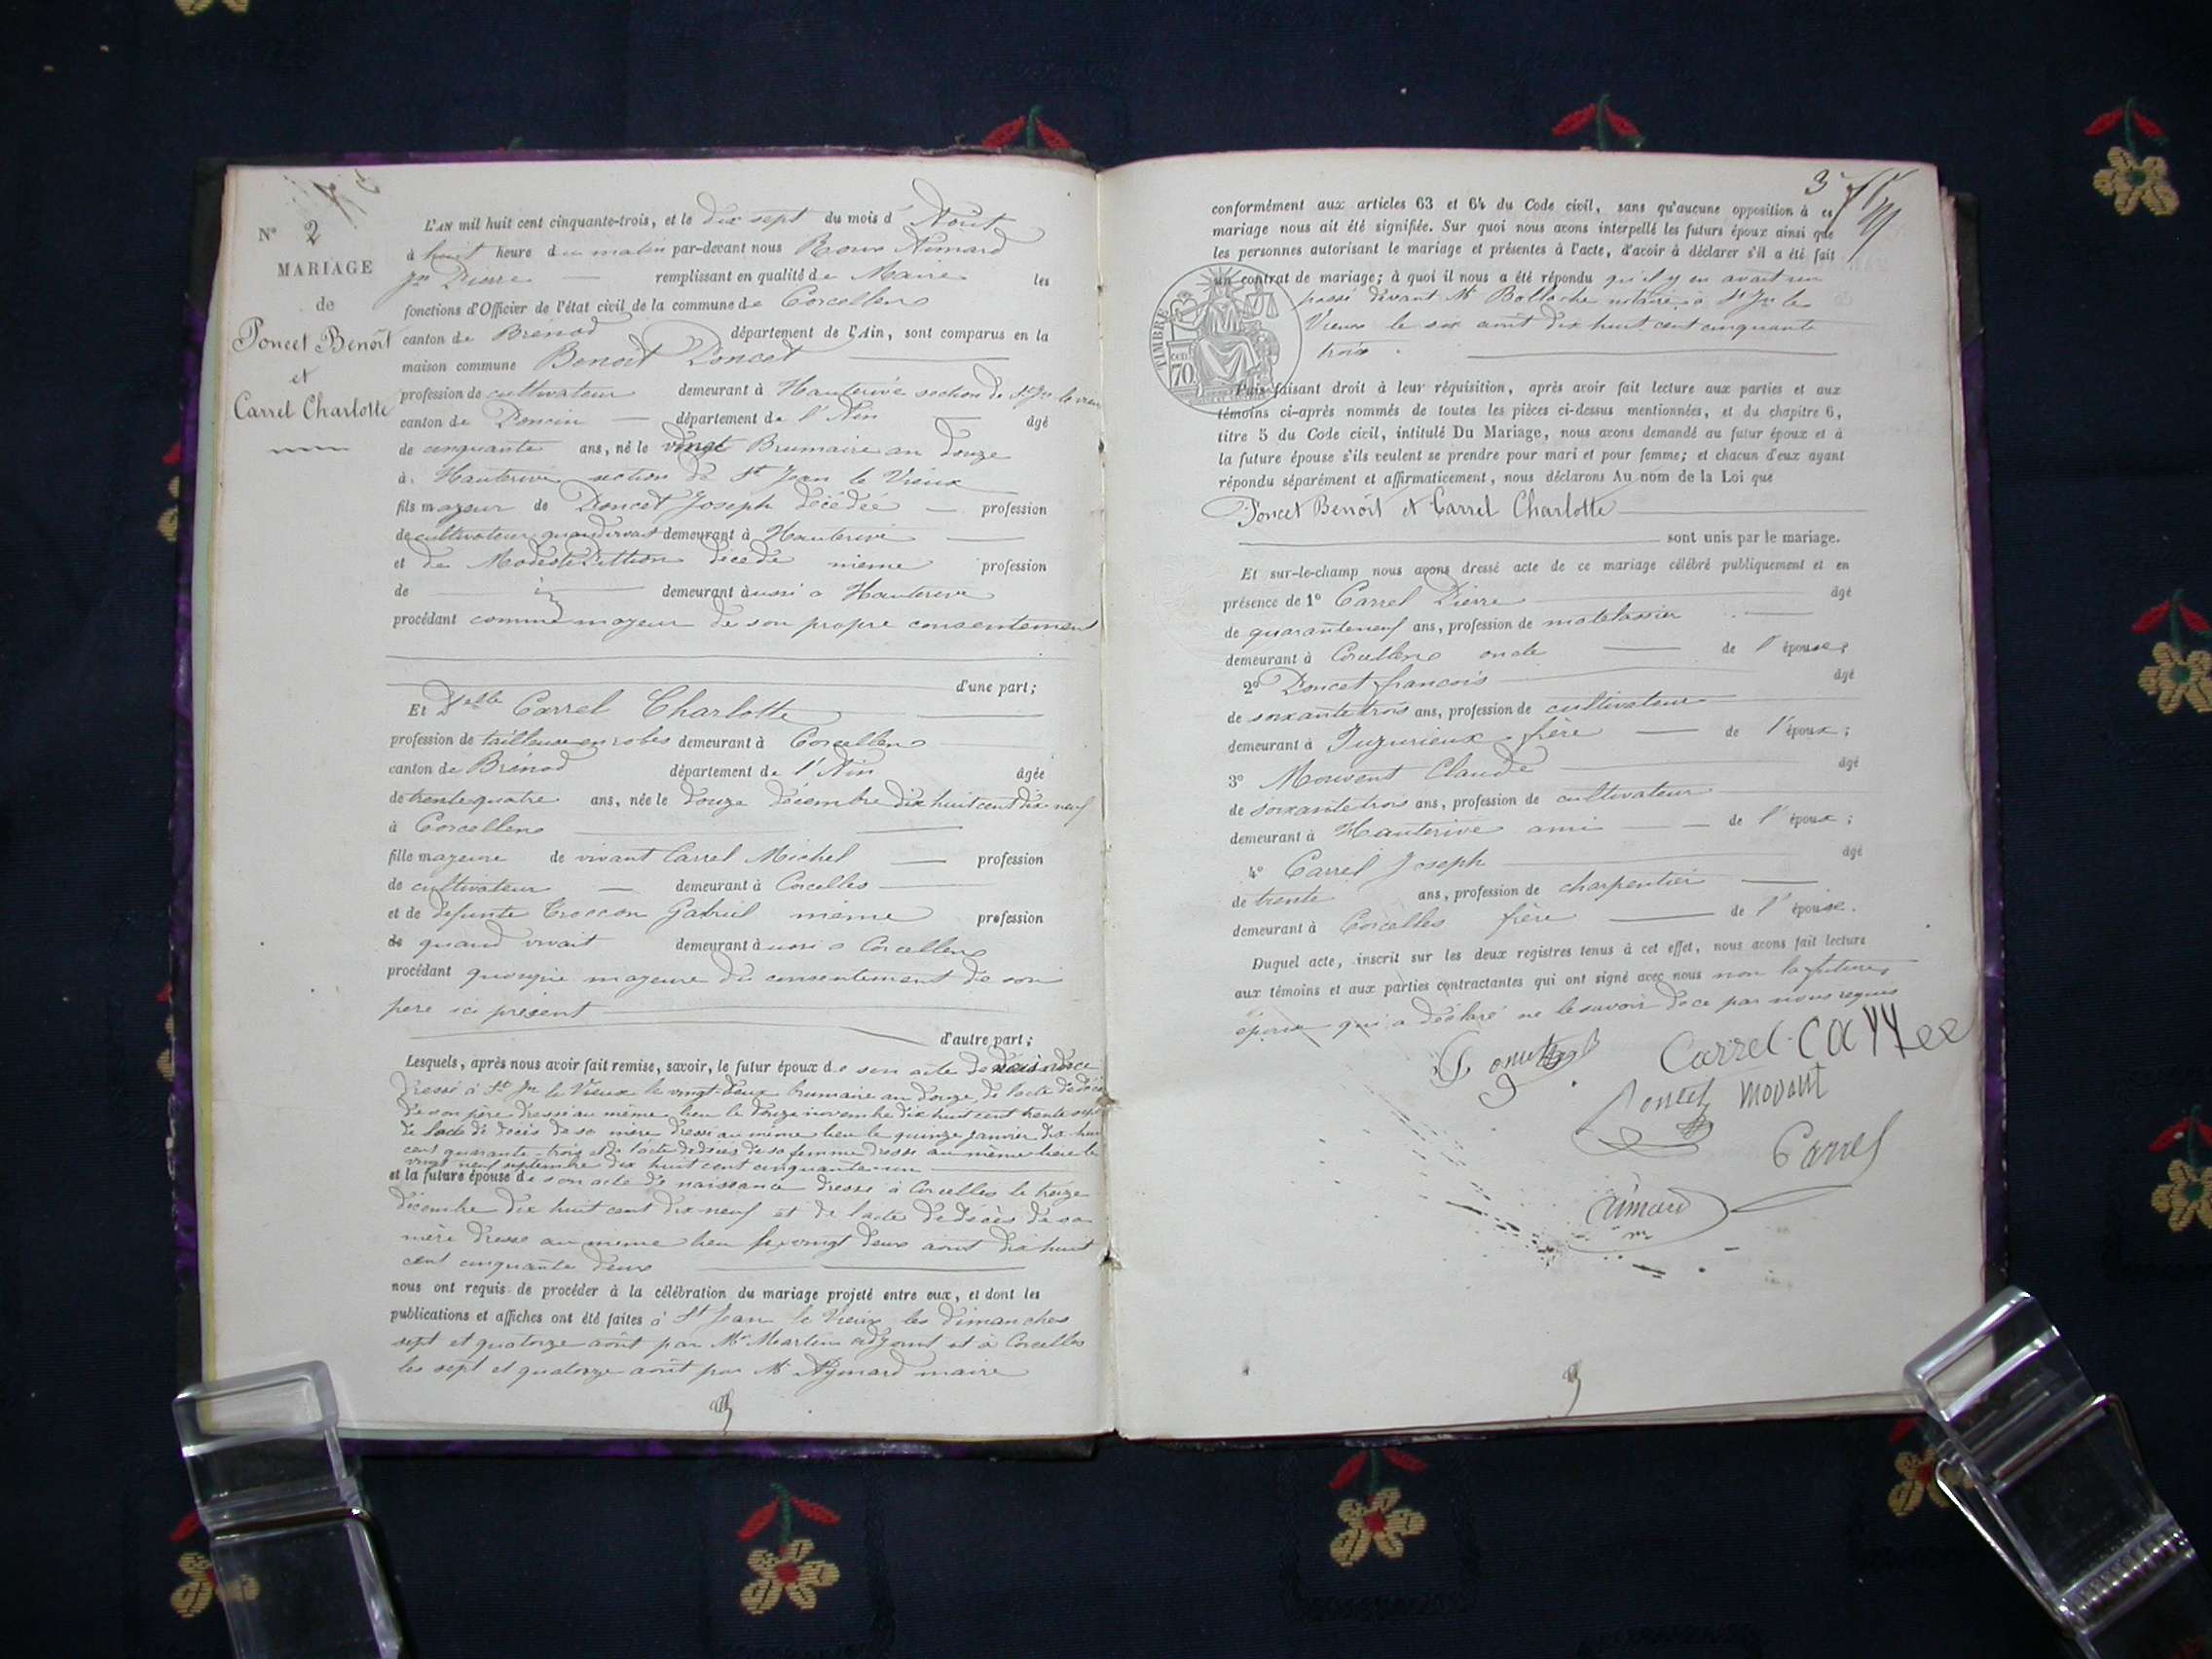 N° 2
MARIAGE
de
Poncet Benoit
et
Carrel Charlotte
L'AN mil huit cent cinquante-trois, et le dix sept du mois d'Août
à huit heure du matin par-devant nous Roux Aimard
Jn Pierre remplissant en qualité de Maire les
fonctions d'Officier de l'état civil de la commune de Corcelles
canton de Brénod département de l'Ain, sont comparus en la
maison commune Benoit Poncet
profession de cultivateur demeurant à Hauterive section de St Jn le vieux
canton de Poncin département de l'Ain âgé
de cinquante ans, né le vingt Brumaire an douze
à Hauterive section de St Jean le Vieux
fils majeur de Poncet Joseph décédé profession
de cultivateur quand vivait demeurant à Hauterive
et de Modeste décédé même profession
de demeurant aussi a Hauterive
procédant comme majeur de son propre consentement
d'une part;
Et Delle Carrel Charlotte
profession de tailleuse en robes demeurant à Corcelles
canton de Brénod département de l'Ain âgée
de trente quatre ans, née le douze décembre dix huit cent dix neuf
à Corcelles
fille majeure de vivant Carrel Michel profession
de cultivateur demeurant à Corcelles
et de défunte Troccon Gabriel même profession
de quand vivait demeurant aussi a Corcelles
procédant quoique majeure du consentement de son
pere ici présent
d'autre part;
Lesquels, après nous avoir fait remise, savoir, le futur époux de son acte de naissance
dressé à St Jn le Vieux le vingt-deux brumaire an douze, de l'acte de décès
de son père dressé au même lieu le douze novembre dix huit cent trente sept
de l'acte de décès de sa mère dressé au même lieu le quinze janvier dix huit
cent quarante-trois et de l'acte de décès de sa femme dressé au même lieu le
vingt neuf septembre dix huit cent cinquante-un
et la future épouse de son acte de naissance dressé à Corcelles le treize
décembre dix huit cent dix neuf et de l'acte de décès de sa
mère dressé au meme lieu le vingt deux août dix huit
cent cinquante deux
nous ont requis de procéder à la célébration du mariage projeté entre eux, et dont les
publications et affiches ont été faites à St Jean le Vieux les dimanches
sept et quatorze août par Mr Martin adjoint et à Corcelles
les sept et quatorze août par Mr Aymard maire
3
conformément aux articles 63 et 64 du Code civil, sans qu'aucune opposition à ce
mariage nous ait été signifiée. Sur quoi nous avons interpellé les futurs époux ainsi que
les personnes autorisant le mariage et présentes à l'acte, d'avoir à déclarer s'il a été fait
un contrat de mariage; à quoi il nous a été répondu qu'il y en avait un
passé devant Mr Bollache notaire à St Jn le
Vieux le six août dix huit cent cinquante
trois.
TIMBRE
70 cen
Puis faisant droit à leur réquisition, après avoir fait lecture aux parties et aux
témoins ci-après nommés de toutes les pièces ci-dessus mentionnées, et du chapitre 6,
titre 5 du Code civil, intitulé Du Mariage, nous avons demandé au futur époux et à
la future épouse s'ils veulent se prendre pour mari et pour femme; et chacun d'eux ayant
répondu séparément et affirmativement, nous déclarons Au nom de la Loi que
Poncet Benoit et Carrel Charlotte
sont unis par le mariage.
Et sur-le-champ nous avons dressé acte de ce mariage célébré publiquement et en
présence de 1° Carrel Pierre âgé
de quaranteneuf ans, profession de matelassier
demeurant à Corcelles oncle de l'épouse;
2° Poncet francois âgé
de soixante trois ans, profession de cultivateur
demeurant à Jujurieux frère de l'époux;
3° Mouvent Claude âgé
de soixante trois ans, profession de cultivateur
demeurant à Hauterive ami de l'époux;
4° Carrel Joseph âgé
de trente ans, profession de charpentier
demeurant à Corcelles frère de l'épouse.
Duquel acte, inscrit sur les deux registres tenus à cet effet, nous avons fait lecture
aux témoins et aux parties contractantes qui ont signé avec nous non la future
épouse qui a déclaré ne le savoir de ce par nous requis
Carrel
Poncet
Carrel
Aimard